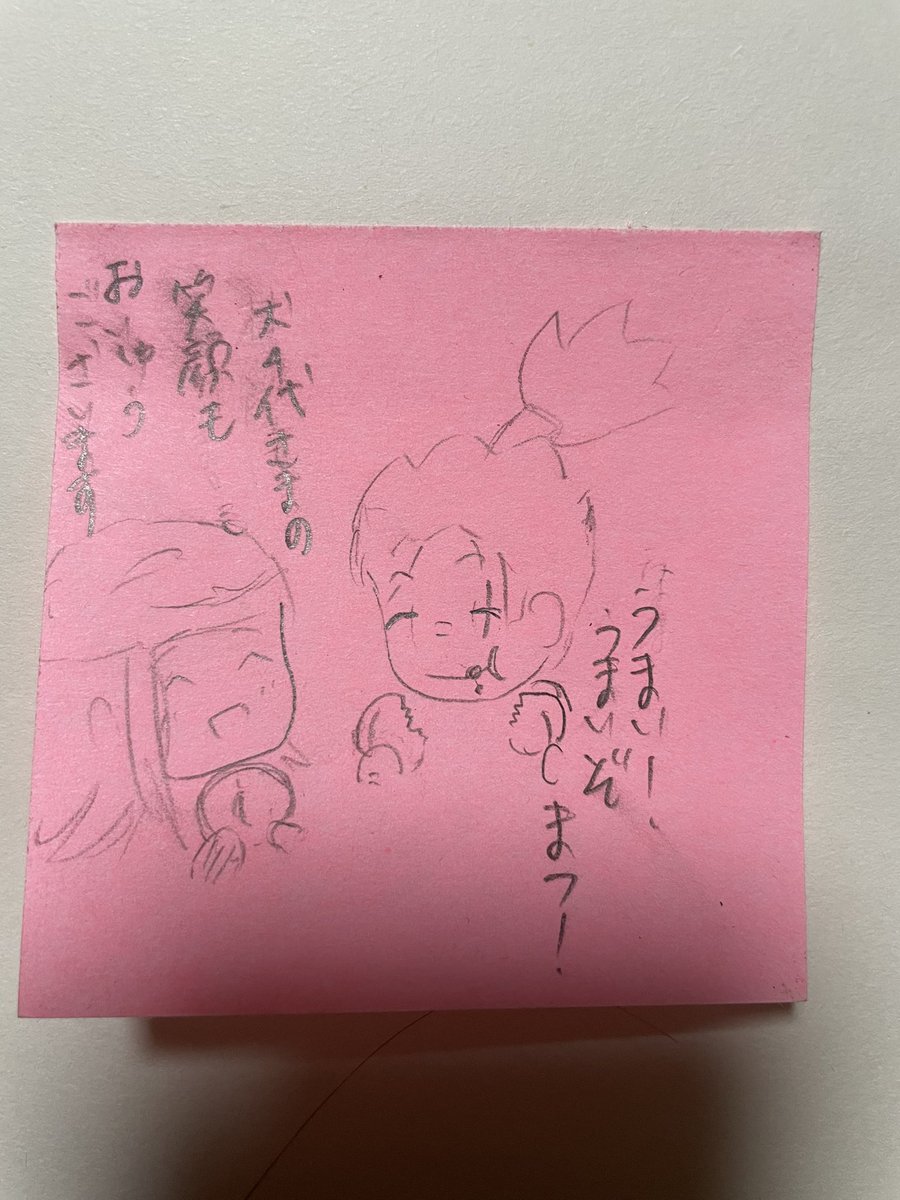 うまいー、
うまいぞ
しまつー！
犬千代さまの
笑顔も
おじゅう
ございます